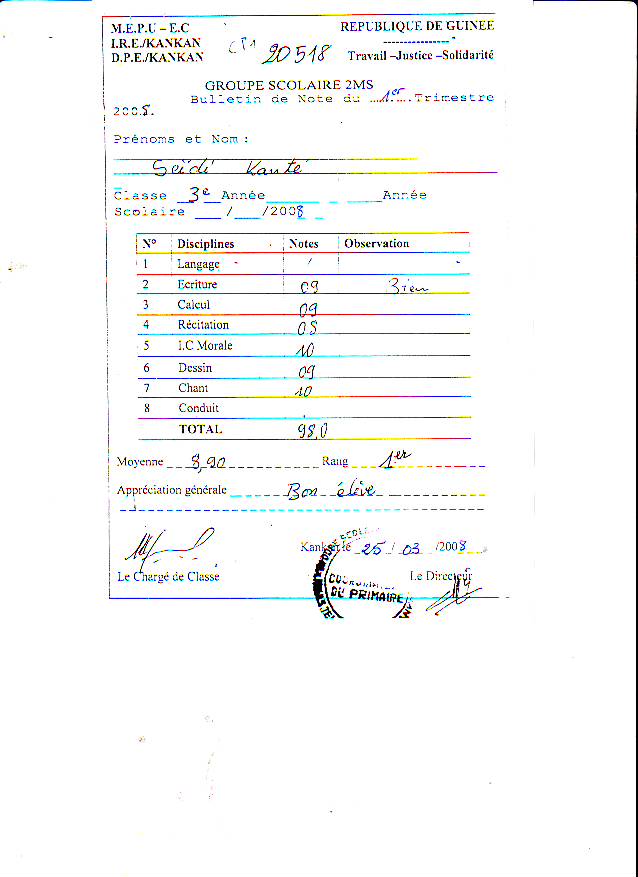 M.E.P.U – E.C REPUBLIQUE DE GUINEE
I.R.E./KANKAN
D.P.E./KANKAN 20518 Travail –Justice –Solidarité
GROUPE SCOLAIRE 2MS
Bulletin de Note du ...1er....Trimestre
2008.
Prénoms et Nom :
Seïdi Kanté
Classe 3e Année Année
Scolaire ___/___/2008
N° Disciplines Notes Observation
1 Langage /
2 Ecriture 09 Bien
3 Calcul 09
4 Récitation 08
5 I.C Morale 10
6 Dessin 09
7 Chant 10
8 Conduit
TOTAL 98,0
Moyenne 8,90 Rang 1er
Appréciation générale Bon élève
Kankan le 25 / 03 /2008
Le Chargé de Classe Le Directeur
DU PRIMAIRE